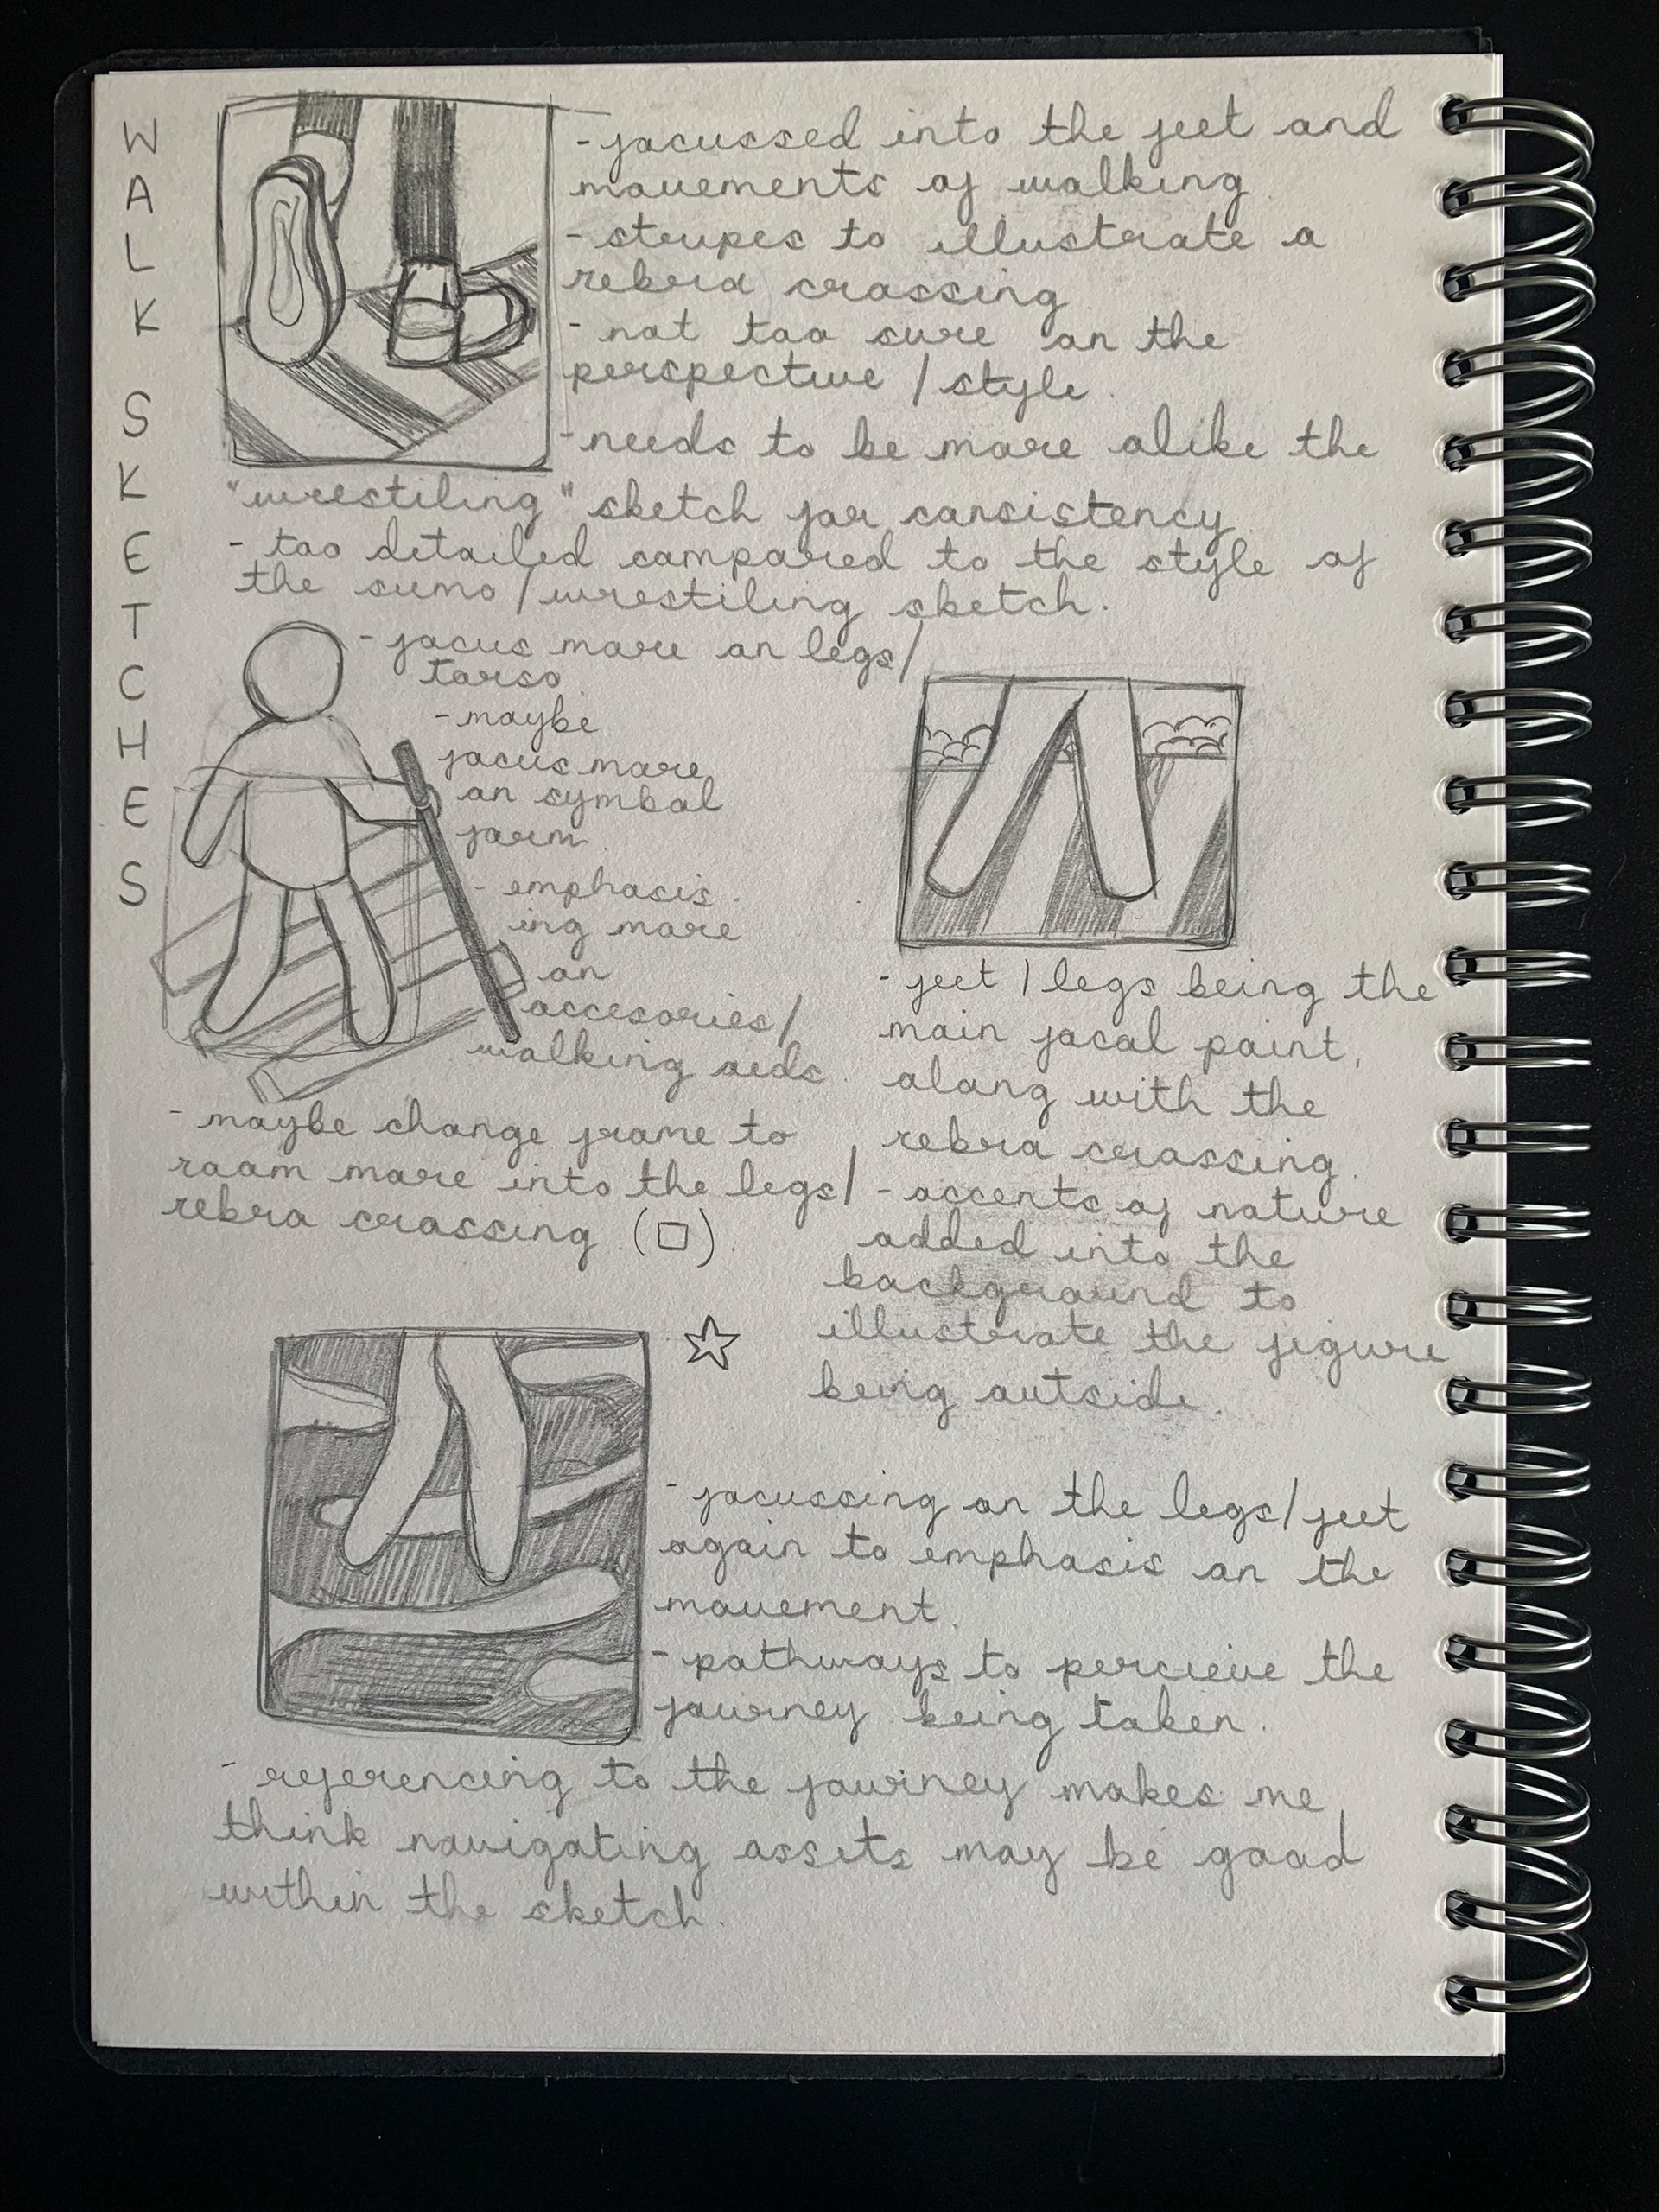 WALK SKETCHES
- focussed into the feet and
movements of walking
- stripes to illustrate a
zebra crossing
- not too sure on the
perspective / style.
- needs to be more alike the
"wrestiling" sketch for consistency.
- too detailed compared to the style of
the sumo / wrestiling sketch.
- focus more on legs/
torso.
- maybe
focus more
on symbol
form.
- emphasis
ing more
on
accesories/
walking aids.
- maybe change frame to
zoom more into the legs/
zebra crossing (□).
- feet / legs being the
main focal point,
along with the
zebra crossing.
- accents of nature
added into the
background to
illustrate the figure
being outside.
- focussing on the legs/feet
again to emphasis on the
movement.
- pathways to percieve the
journey being taken.
- referencing to the journey makes me
think navigating assets may be good
within the sketch.